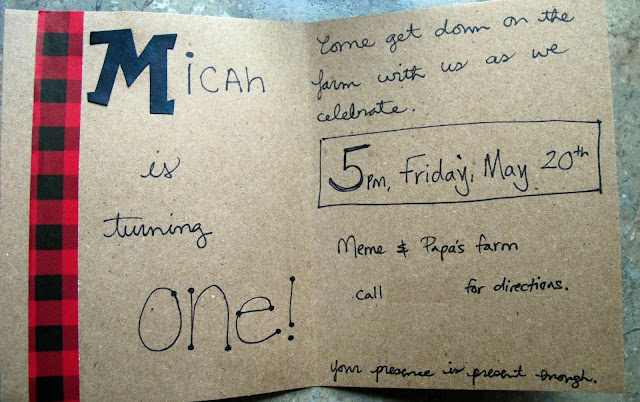 Micah
is
turning
one!
Come get down on the
farm with us as we
celebrate.
5pm, Friday, May 20th
Meme & Papa's farm
call for directions.
Your presence is present enough.